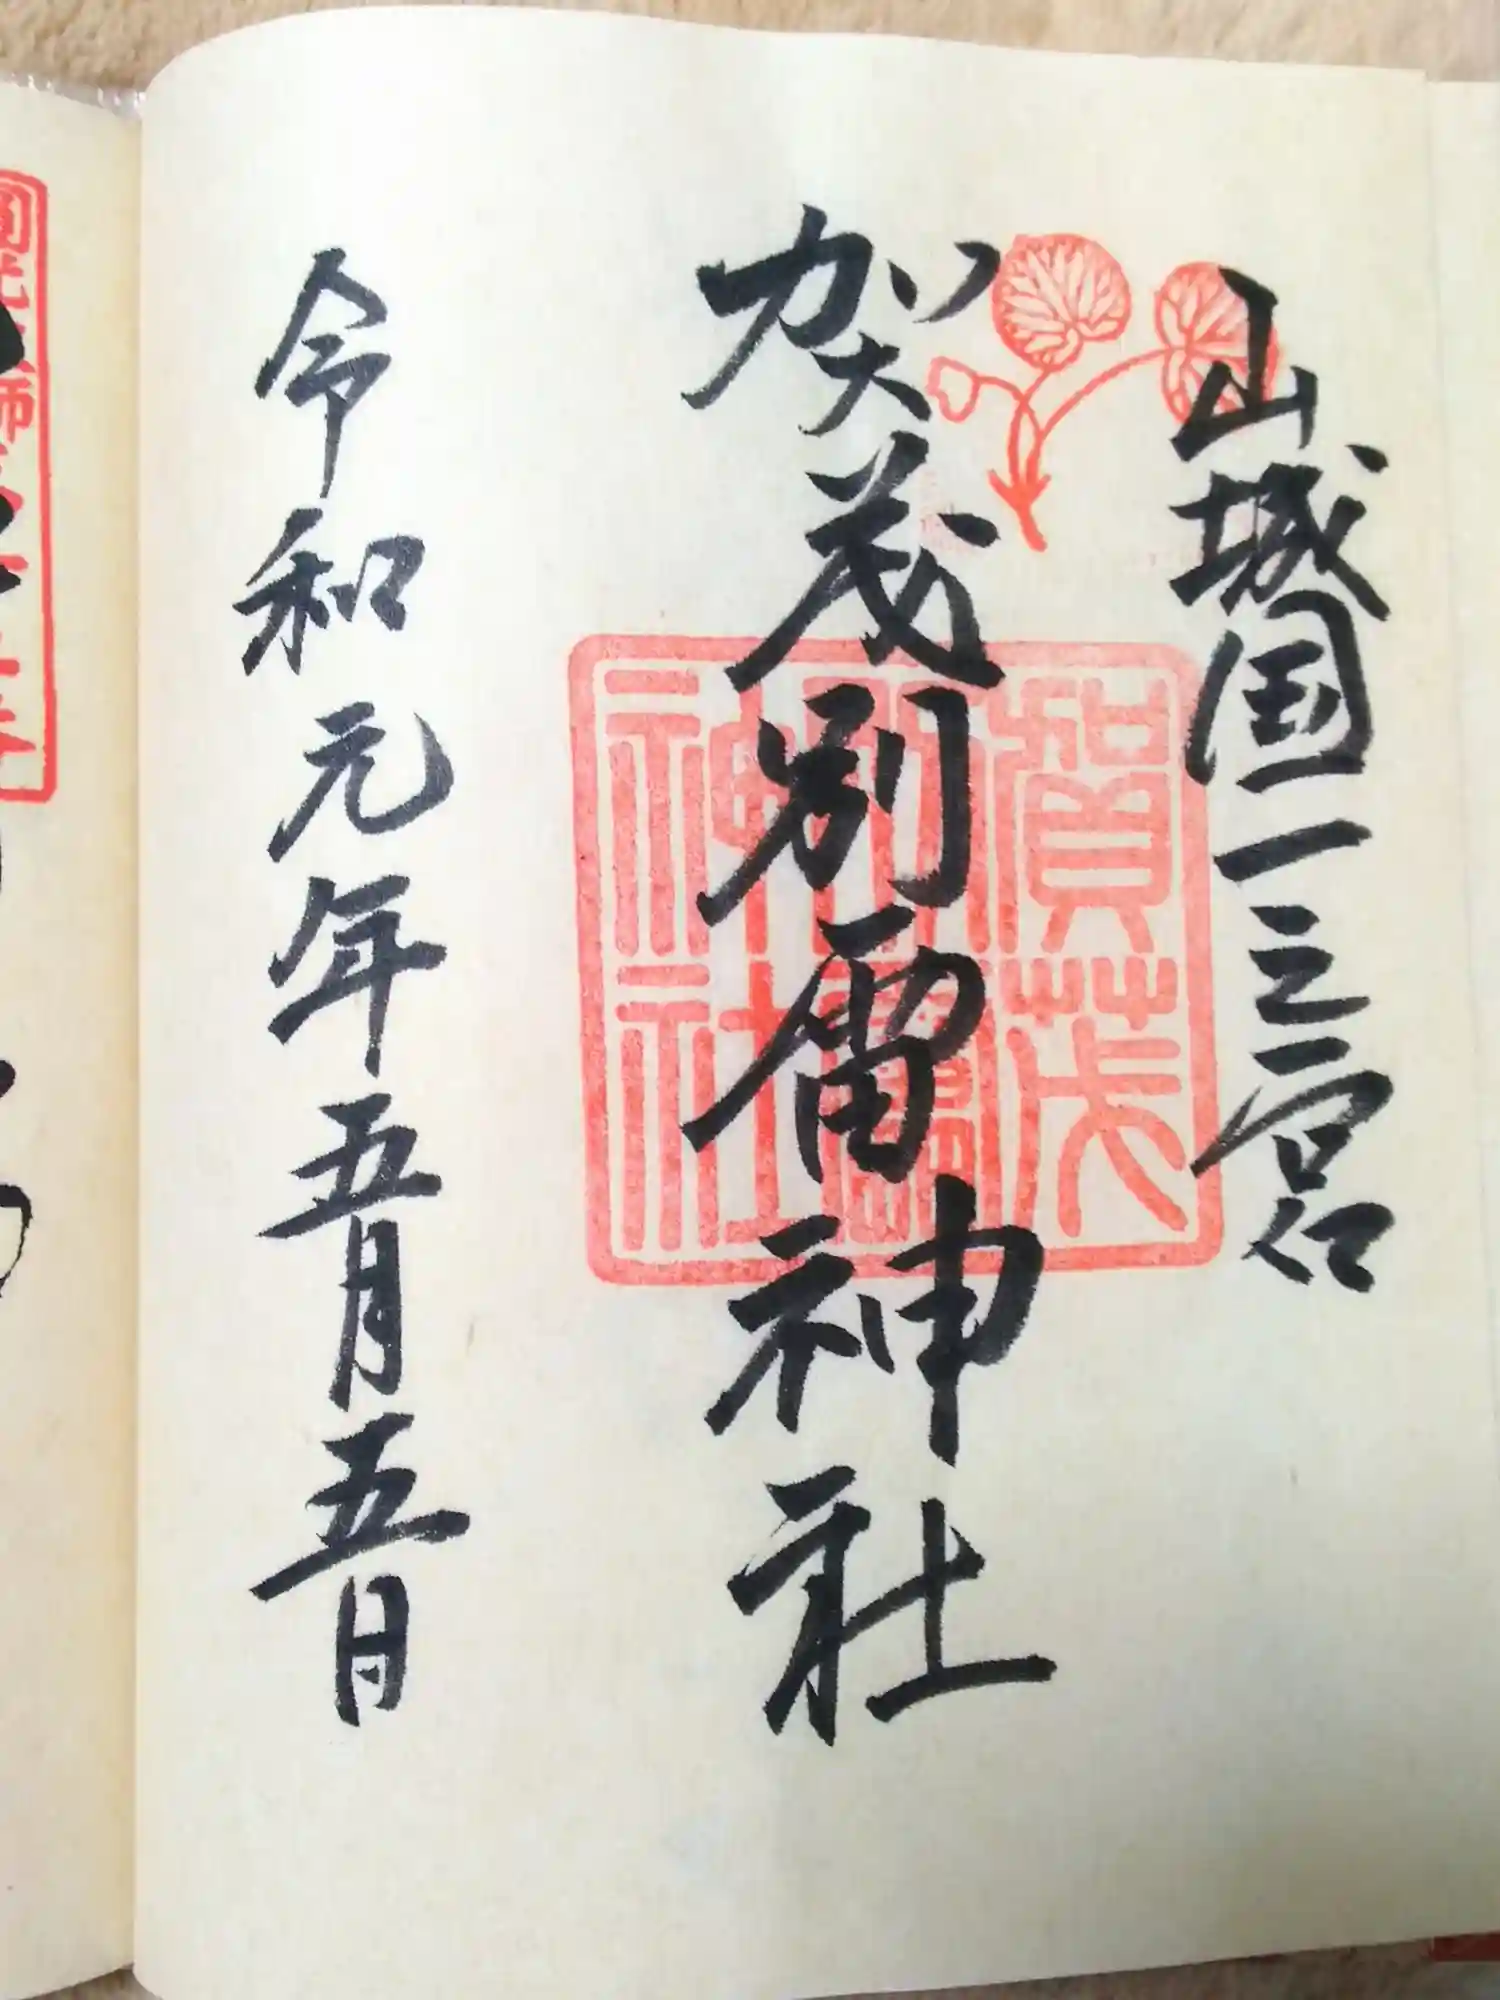 山城国一之宮
賀茂別雷神社
賀茂別雷神社
令和元年五月五日